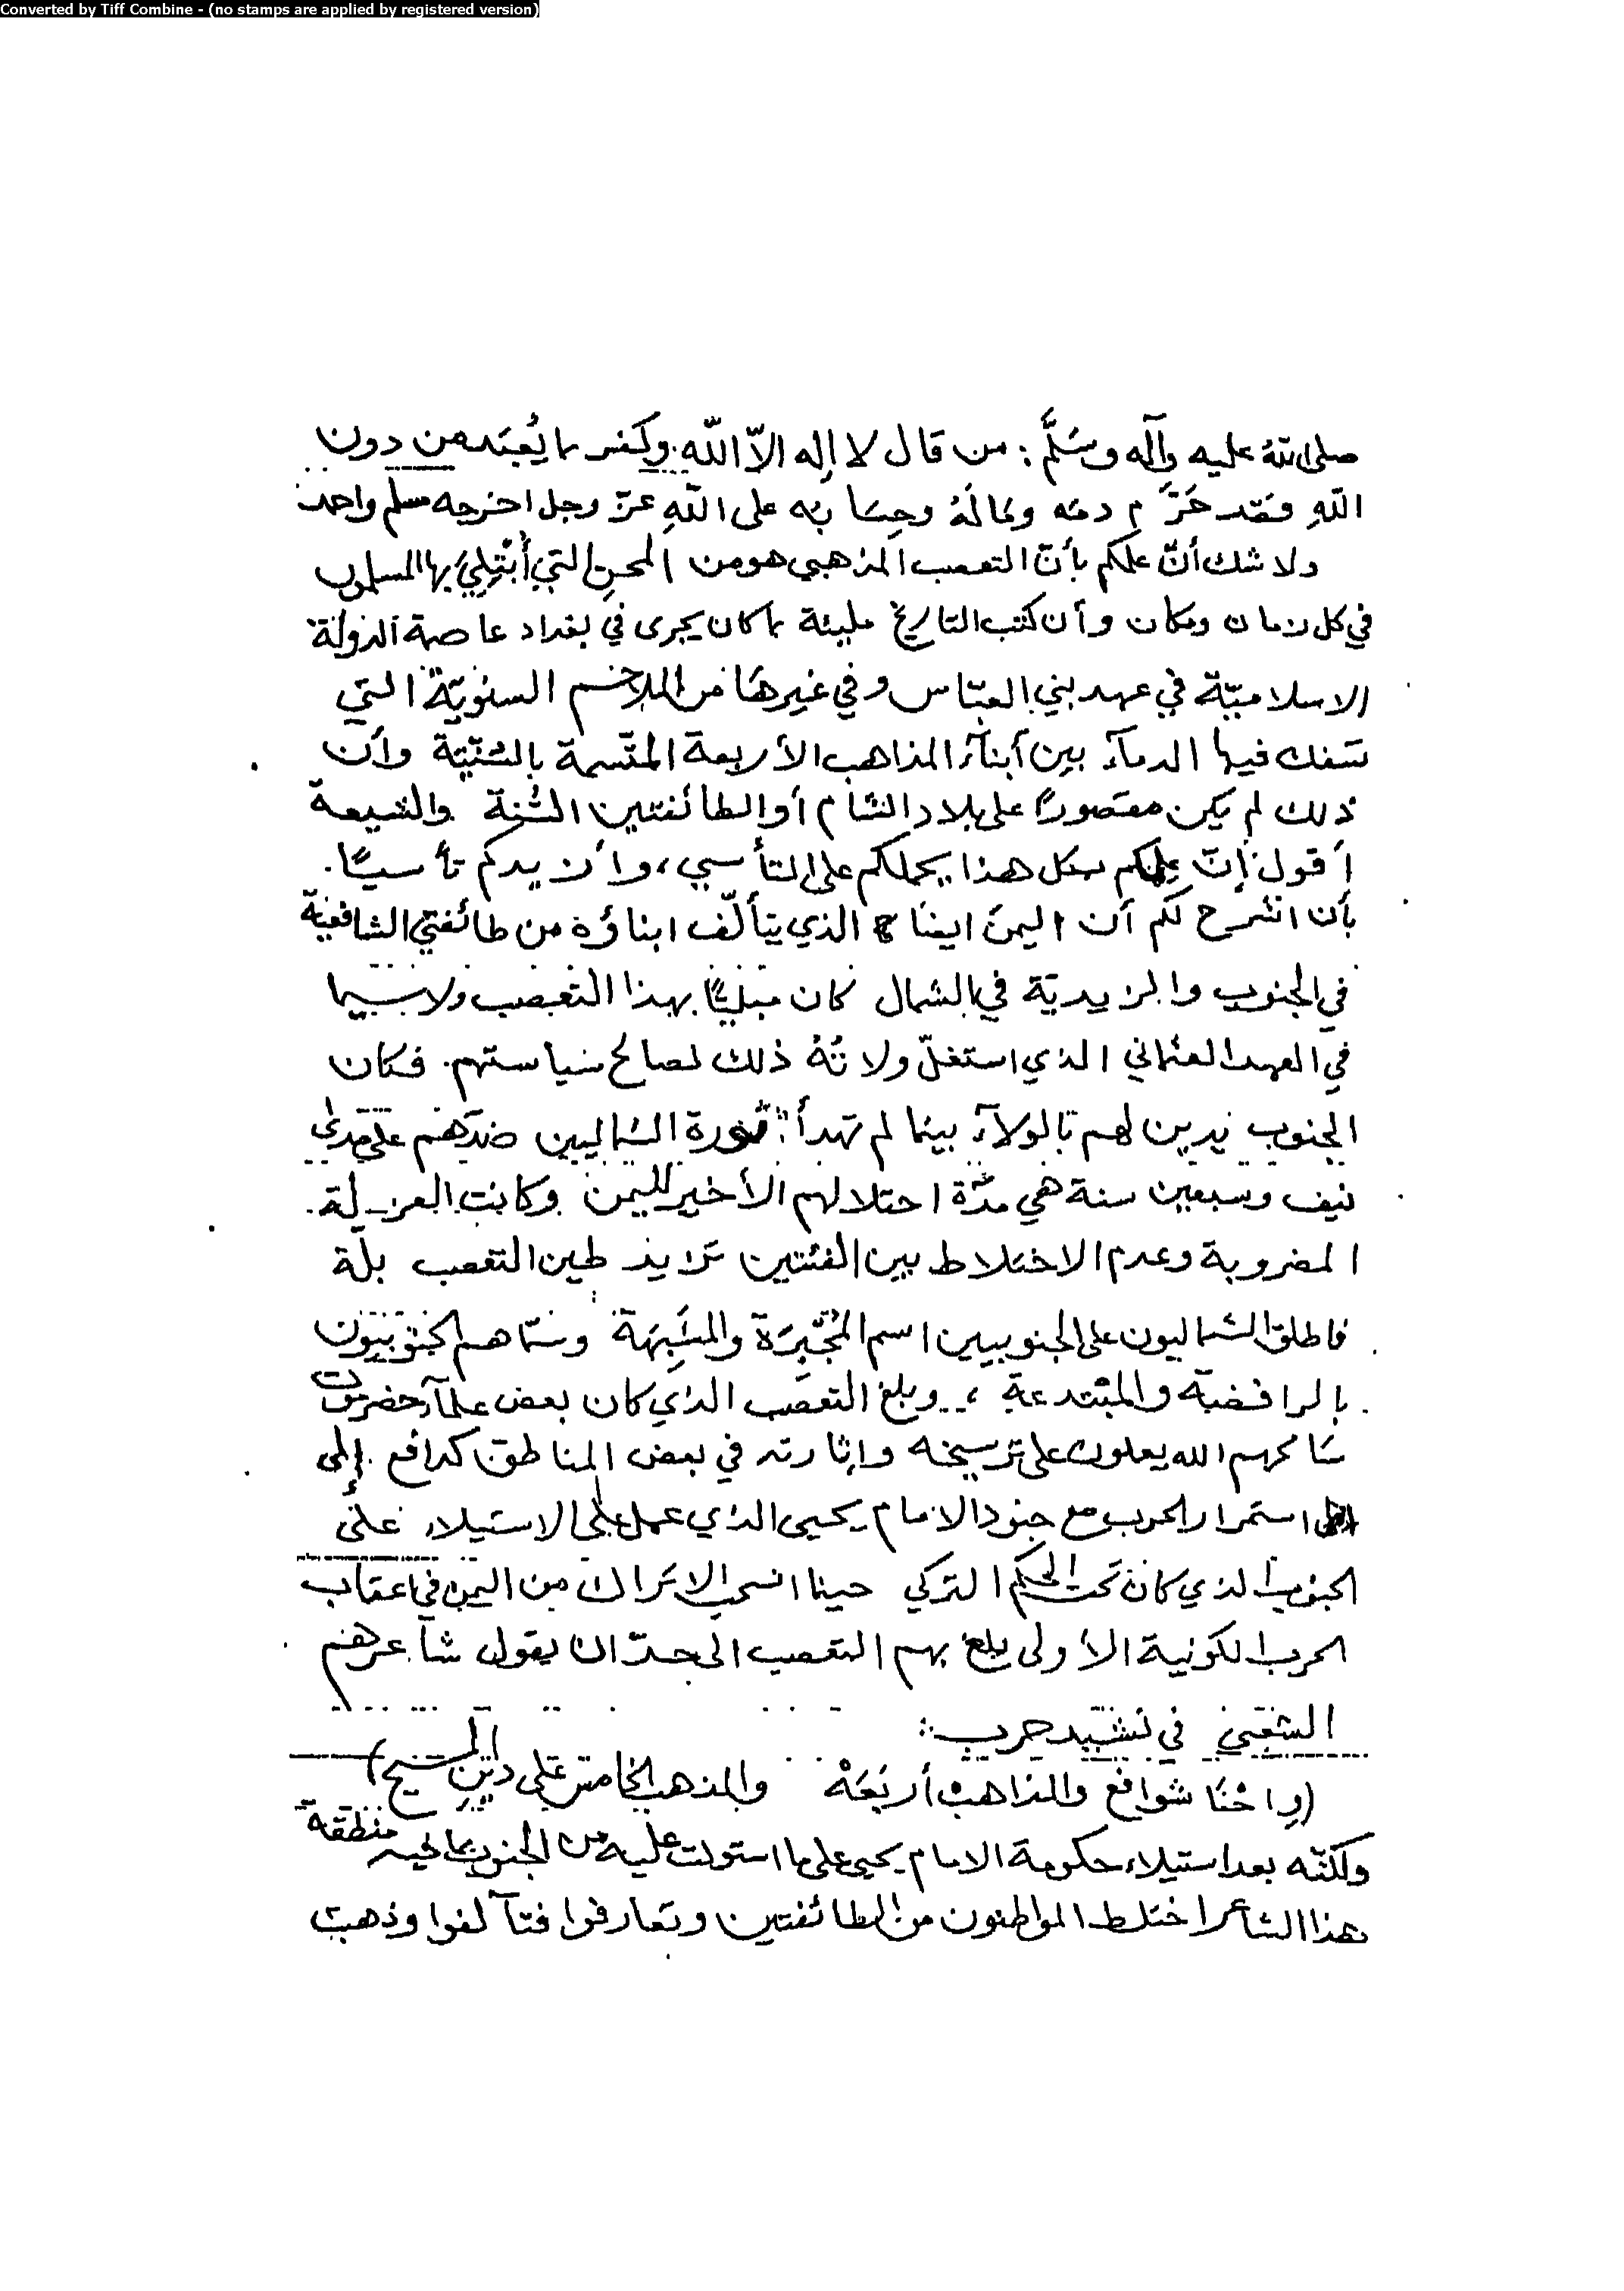 Converted by Tiff Combine - (no stamps are applied by registered version)
صلى الله عليه وآله وسلَّم : من قال لا إله الاّ الله وكفر بما يُعبَد من دون
اللهِ فقد حَرَّم دمه وماله وحسابه على اللهِ عزّ وجل اخرجه مسلم واحمد
ولا شك أنّ علمكم بأنّ التعصب المذهبي هو من المحن التي أُبْتُلِيَ بها المسلمون
في كل زمان ومكان وأن كتب التاريخ مليئة بما كان يجرى في بغداد عاصمة الدولة
الاسلاميّة في عهد بني العبّاس وفي غيرها من الملاحم السنويّة التي
تسفك فيها الدماء بين أبناء المذاهب الأربعة المتّسمة بالسُّنّيّة وأن
ذلك لم يكن مقصوراً على بلاد الشام أو الطائفتين السُّنة والشيعة
أقول إنّ علمكم بكل هذا يحملكم على التأسي، وأزيدكم تأسيًا
بأن اشرح لكم أن اليمن ايضاً الذي يتألّف ابناؤه من طائفتي الشافعيّة
في الجنوب والزيديّة في الشمال كان مبتليًا بهذا التعصب ولا سيما
في العهد العثماني الذي استغلّ ولاتُهُ ذلك لصالح سياستهم. فكان
الجنوب يدين لهم بالولاء بينما لم تهدأ ثورة الشماليين ضدهم على مدى
نيف وسبعين سنة هي مدّة احتلالهم الأخير لليمن وكانت العزلة
المضروبة وعدم الاختلاط بين الفئتين تزيد طين التعصب بلّة
فاطلق الشماليون على الجنوبيين اسم المُجَبِّرَة والمشَبِّهَة وسمّاهم الجنوبيّون
بالرافضية والمبْتدعة ، .. وبلغ التعصب الذي كان بعض علماء حضرموت
سامحهم الله يعملون على ترسيخه وإثارته في بعض المناطق كدافع إلى
استمرار الحرب مع جنود الامام يحيى الذي عمل على الاستيلاء على
الجنوب الذي كان تحت الحكم التركي حينما انسحب الاتراك من اليمن في اعقاب
الحرب الكونية الأولى بلغ بهم التعصب الى حدّ ان يقول شاعرهم
الشعبي في نشيد حرب :
(واحْنَا شوافع والمذاهب أربَعَهْ والمذهب الخامس على دين المسيح)
ولكنّه بعد استيلاء حكومة الامام يحيى على ما استولت عليه من الجنوب بما فيه منطقة
هذا الشاعر اختلط المواطنون من الطائفتين وتعارفوا فتآلفوا وذهبت